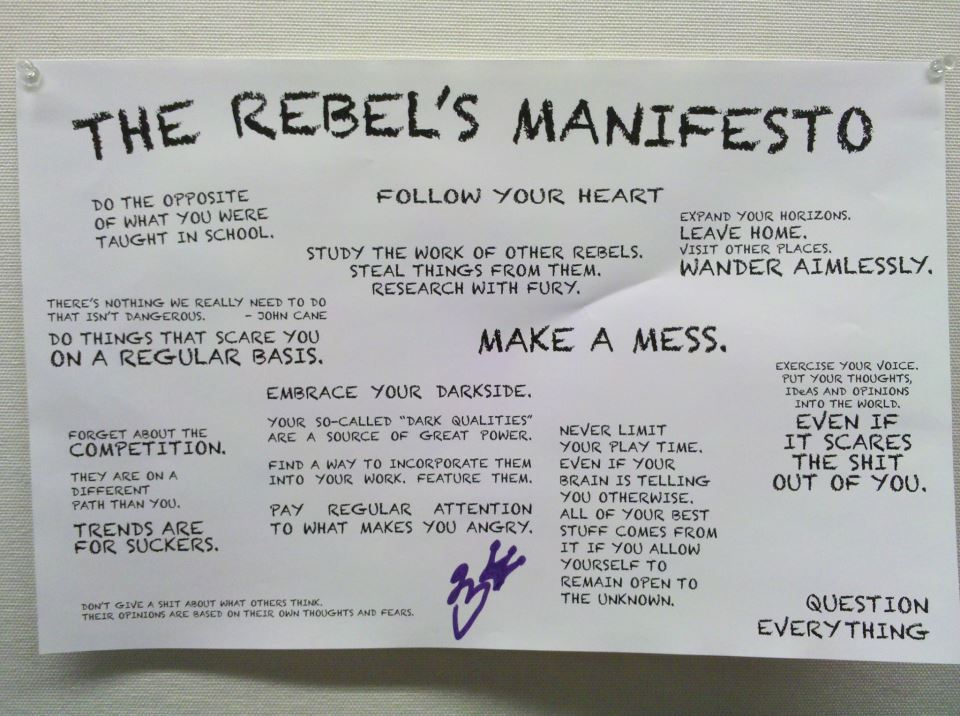 THE REBEL'S MANIFESTO
DO THE OPPOSITE
OF WHAT YOU WERE
TAUGHT IN SCHOOL.
FOLLOW YOUR HEART
EXPAND YOUR HORIZONS.
LEAVE HOME.
VISIT OTHER PLACES.
WANDER AIMLESSLY.
STUDY THE WORK OF OTHER REBELS.
STEAL THINGS FROM THEM.
RESEARCH WITH FURY.
THERE'S NOTHING WE REALLY NEED TO DO
THAT ISN'T DANGEROUS. - JOHN CANE
DO THINGS THAT SCARE YOU
ON A REGULAR BASIS.
MAKE A MESS.
EMBRACE YOUR DARKSIDE.
YOUR SO-CALLED "DARK QUALITIES"
ARE A SOURCE OF GREAT POWER.
FIND A WAY TO INCORPORATE THEM
INTO YOUR WORK. FEATURE THEM.
PAY REGULAR ATTENTION
TO WHAT MAKES YOU ANGRY.
EXERCISE YOUR VOICE.
PUT YOUR THOUGHTS,
IDeAS AND OPINIONS
INTO THE WORLD.
EVEN IF
IT SCARES
THE SHIT
OUT OF YOU.
FORGET ABOUT THE
COMPETITION.
THEY ARE ON A
DIFFERENT
PATH THAN YOU.
TRENDS ARE
FOR SUCKERS.
NEVER LIMIT
YOUR PLAY TIME.
EVEN IF YOUR
BRAIN IS TELLING
YOU OTHERWISE.
ALL OF YOUR BEST
STUFF COMES FROM
IT IF YOU ALLOW
YOURSELF TO
REMAIN OPEN TO
THE UNKNOWN.
DON'T GIVE A SHIT ABOUT WHAT OTHERS THINK.
THEIR OPINIONS ARE BASED ON THEIR OWN THOUGHTS AND FEARS.
QUESTION
EVERYTHING